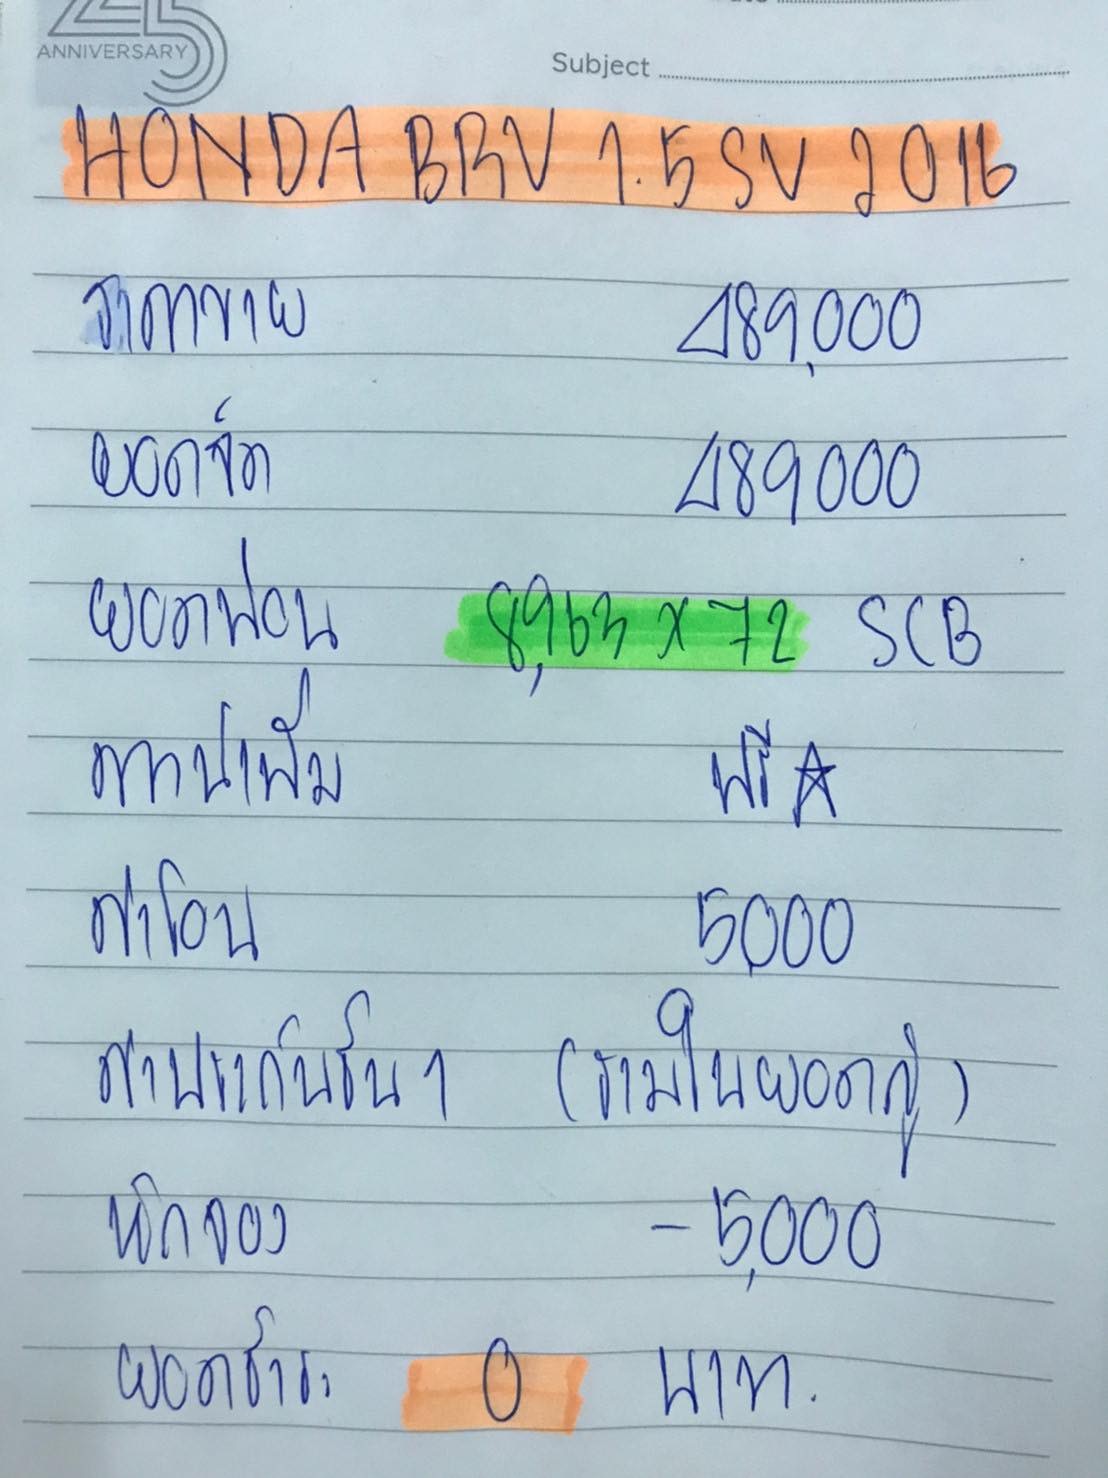 25
ANNIVERSARY
Subject
HONDA BRV 1.5 SV 2016
ราคาขาย 489,000
ยอดจัด 489000
ยอดผ่อน 8,963 x 72 SCB
ดาวน์เพิ่ม ฟรี ☆
ค่าโอน 5,000
ค่าประกันชั้น 1 (รวมในยอดกู้)
หักจอง - 5,000
ยอดชำระ 0 บาท.